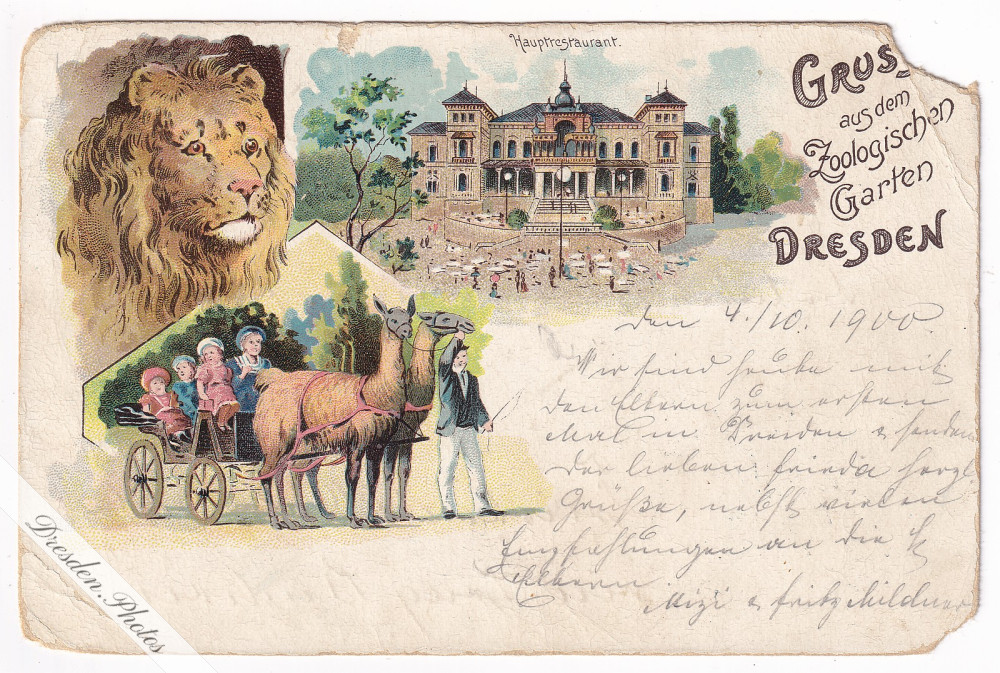 Hauptrestaurant.
GRUS
aus dem
Zoologischen
Garten
DRESDEN
Den 4./10. 1900.
Wir sind heute mit
den Eltern zum ersten
Mal in Dresden & senden
der lieben Frieda herzl.
Grüße, nebst vielen
Empfehlungen an die
Eltern
Mizi & Fritz Mildner
Dresden.Photos